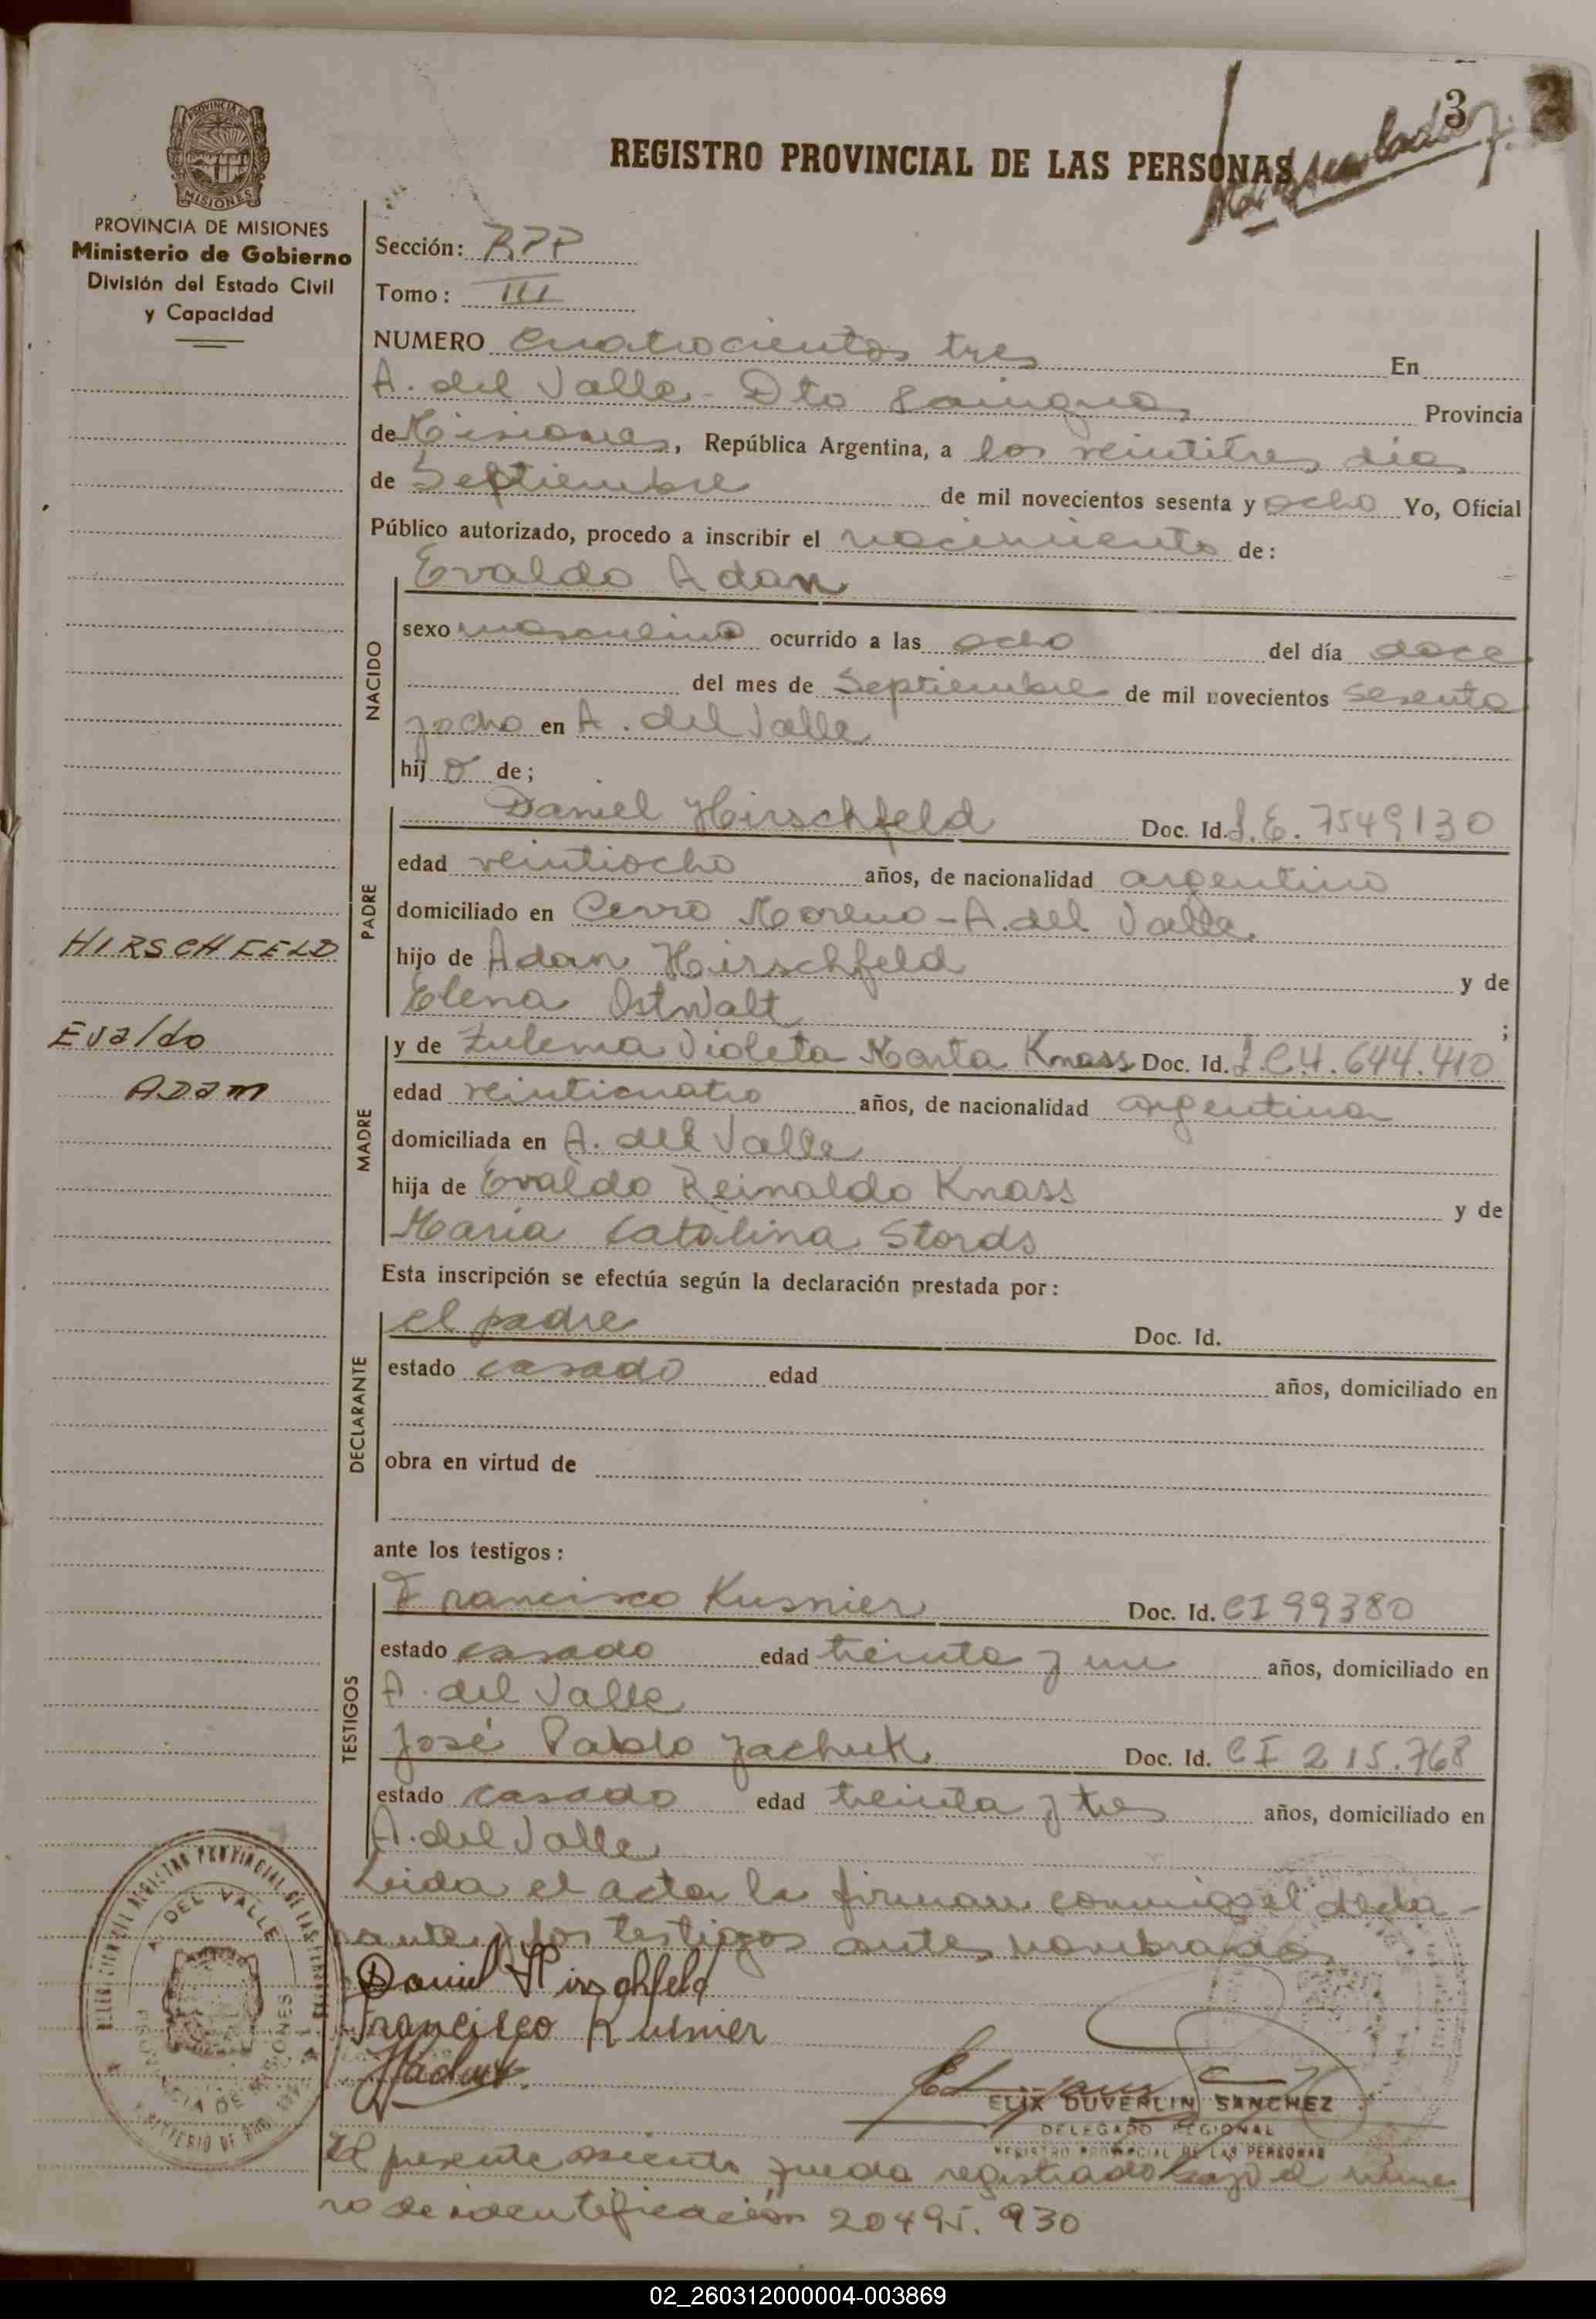 3
REGISTRO PROVINCIAL DE LAS PERSONAS
PROVINCIA DE MISIONES
Ministerio de Gobierno
División del Estado Civil
y Capacidad
HIRSCHFELD
Evaldo
ADAM
Sección: RPP
Tomo: III
NUMERO Cuatrocientos tres En
A. del Valle - Dto Cainguas Provincia
de Misiones, República Argentina, a los veintitres dias
de Septiembre de mil novecientos sesenta y ocho Yo, Oficial
Público autorizado, procedo a inscribir el nacimiento de:
Evaldo Adan
NACIDO
sexo masculino ocurrido a las ocho del día doce
del mes de Septiembre de mil novecientos sesenta
y ocho en A. del Valle
hij o de;
PADRE
Daniel Hirschfeld Doc. Id. L.E. 7549130
edad veintiocho años, de nacionalidad argentino
domiciliado en Cerro Moreno - A. del Valle
hijo de Adan Hirschfeld y de
Elena Ostwalt ;
MADRE
y de Zulema Violeta Marta Knass Doc. Id. L.C 4.644.410
edad veinticuatro años, de nacionalidad argentina
domiciliada en A. del Valle
hija de Evaldo Reinaldo Knass y de
Maria Catalina Stords
Esta inscripción se efectúa según la declaración prestada por:
DECLARANTE
el padre Doc. Id.
estado casado edad años, domiciliado en
obra en virtud de
ante los testigos:
TESTIGOS
Francisco Kusnier Doc. Id. CI 99380
estado casado edad treinta y un años, domiciliado en
A. del Valle
José Pablo Jachuk Doc. Id. CI 215.768
estado casado edad treinta y tres años, domiciliado en
A. del Valle
Leida el acta la firman conmigo el decla-
rante y los testigos antes nombrados
Daniel Hirschfeld
Francisco Kusnier
Jachuk
ELIX DUVERLIN SANCHEZ
DELEGADO REGIONAL
REGISTRO PROVINCIAL DE LAS PERSONAS
El presente asiento queda registrado bajo el nume
ro de identificación 20495.930
A. DEL VALLE
PROVINCIA DE MISIONES
02_260312000004-003869